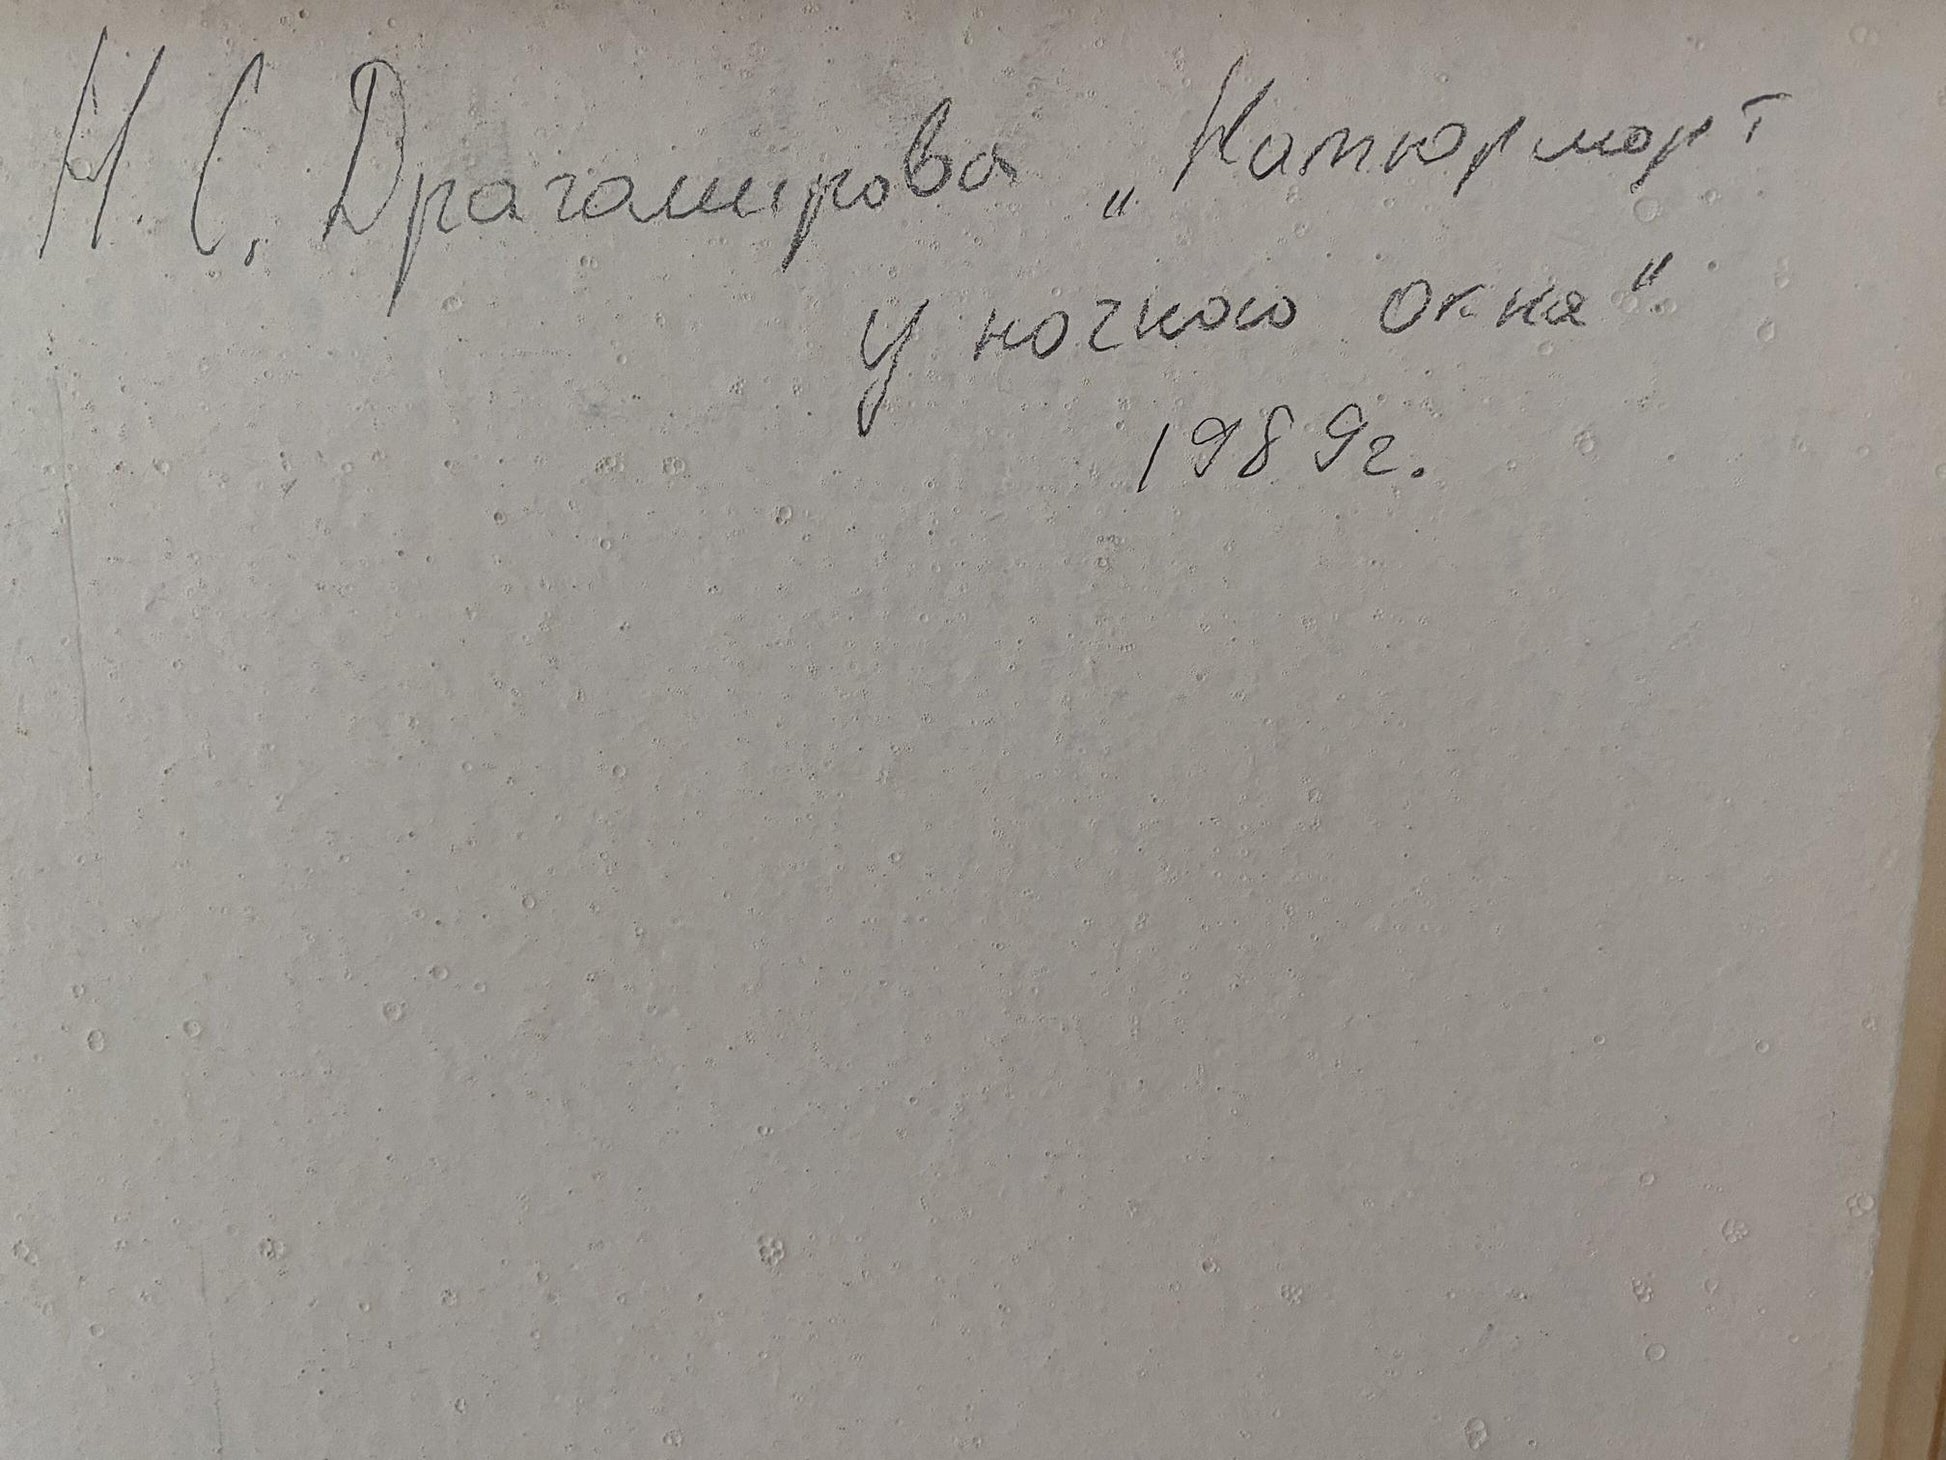 Н. С. Драгамирова „Натюрморт
у ночного окна"
1989г.